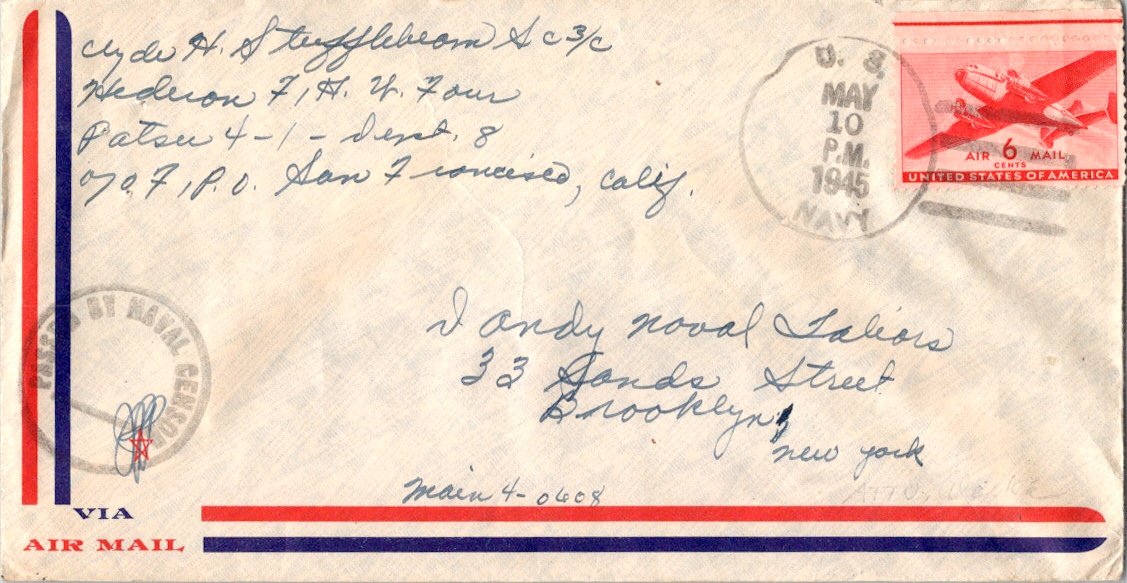 Clyde H. Stufflebeam S c 3/c
Hedron 7, H. W. Four
Patsu 4-1 - Dept. 8
c/o F, P.O. San Francisco, Calif.
U. S.
MAY
10
P.M.
1945
NAVY
AIR 6 MAIL
CENTS
UNITED STATES OF AMERICA
PASSED BY NAVAL CENSOR
Dandy Naval Tailors
33 Sands Street
Brooklyn,
New York
Main 4-0608
VIA
AIR MAIL